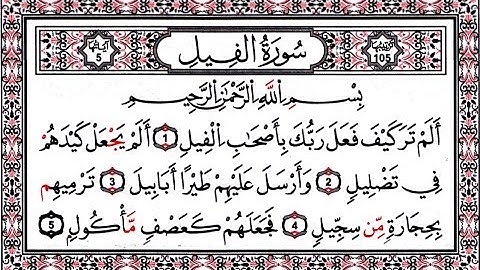 آياتها 5 سُورَةُ الفِيلِ ترتيبها 105
بِسْمِ اللَّهِ الرَّحْمَٰنِ الرَّحِيمِ
أَلَمْ تَرَ كَيْفَ فَعَلَ رَبُّكَ بِأَصْحَابِ الْفِيلِ 1 أَلَمْ يَجْعَلْ كَيْدَهُمْ
فِي تَضْلِيلٍ 2 وَأَرْسَلَ عَلَيْهِمْ طَيْرًا أَبَابِيلَ 3 تَرْمِيهِم
بِحِجَارَةٍ مِّن سِجِّيلٍ 4 فَجَعَلَهُمْ كَعَصْفٍ مَّأْكُولٍ 5